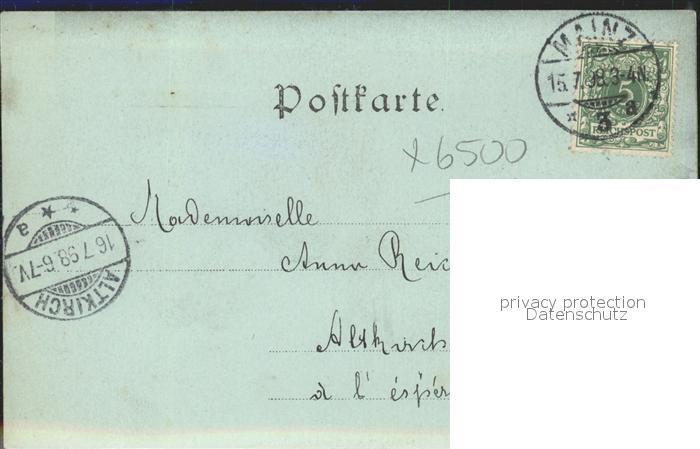 MAINZ
15.7.98.3-4N.
* 3 a
5
REICHSPOST
Postkarte.
x 6500
Mademoiselle
Anna Reic
16.7.98.6-7V
ALTKIRCH
* * a
privacy protection
Datenschutz
Altkirch
a l'